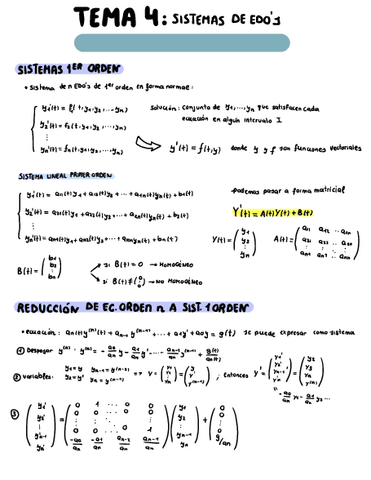 TEMA 4: SISTEMAS DE EDO's
SISTEMAS 1ER ORDEN
• Sistema de n EDO's de 1er orden en forma normal:
y₁'(t) = f(t, y₁, y₂, ... yₙ)
y₂'(t) = f₂(t, y₁, y₂, ... yₙ)
⋮
yₙ'(t) = fₙ(t, y₁, y₂, ... yₙ)
Solución: conjunto de y₁, ..., yₙ que satisfacen cada
ecuación en algún intervalo I
y'(t) = f(t, y) donde y y f son funciones vectoriales
SISTEMA LINEAL PRIMER ORDEN
y₁'(t) = a₁₁(t)y₁ + a₁₂(t)y₂ + ... + a₁ₙ(t)yₙ(t) + b₁(t)
y₂'(t) = a₂₁(t)y₁ + a₂₂(t)y₂ + ... + a₂ₙ(t)yₙ(t) + b₂(t)
⋮
yₙ'(t) = aₙ₁(t)y₁ + aₙ₂(t)y₂ + ... + aₙₙ(t)yₙ(t) + bₙ(t)
podemos pasar a forma matricial
Y'(t) = A(t)Y(t) + B(t)
Y(t) = (y₁ y₂ ⋮ yₙ) A(t) = (a₁₁ a₁₂ ... a₁ₙ a₂₁ a₂₂ ... a₂ₙ ⋮ aₙ₁ aₙ₂ ... aₙₙ)
B(t) = (b₁ b₂ ⋮ bₙ)
→ si B(t) = 0 → HOMOGÉNEO
→ si B(t) ≠ (0 ⋮ 0) → NO HOMOGÉNEO
REDUCCIÓN DE EC. ORDEN n A SIST. 1 ORDEN
• ecuación: aₙ(t)y⁽ⁿ⁾(t) + aₙ₋₁y⁽ⁿ⁻¹⁾ + ... + a₁y' + a₀y = g(t) se puede expresar como sistema
① Despejar y⁽ⁿ⁾: y⁽ⁿ⁾ = -a₀/aₙ y - a₁/aₙ y' ... - aₙ₋₁/aₙ y⁽ⁿ⁻¹⁾ + g(t)/aₙ
② Variables: y₁ = y yₙ₋₁ = y⁽ⁿ⁻²⁾
y₂ = y' yₙ = y⁽ⁿ⁻¹⁾
⇒ Y = (y₁ y₂ ⋮ yₙ) = (y y' ⋮ y⁽ⁿ⁻¹⁾), entonces Y' = (y₁' y₂' ⋮ yₙ₋₁' yₙ') = (y₂ y₃ ⋮ yₙ y⁽ⁿ⁾)
= -a₀/aₙ y₁ - a₁/aₙ y₂ ...
③ (y₁' y₂' ⋮ yₙ₋₁' yₙ') = (0 1 0 ... 0 0 0 ... 0 ⋮ 0 0 ... 1 -a₀/aₙ -a₁/aₙ -a₂/aₙ -aₙ₋₁/aₙ) (y₁ y₂ ⋮ yₙ₋₁ yₙ) + (0 0 ⋮ 0 g/aₙ)